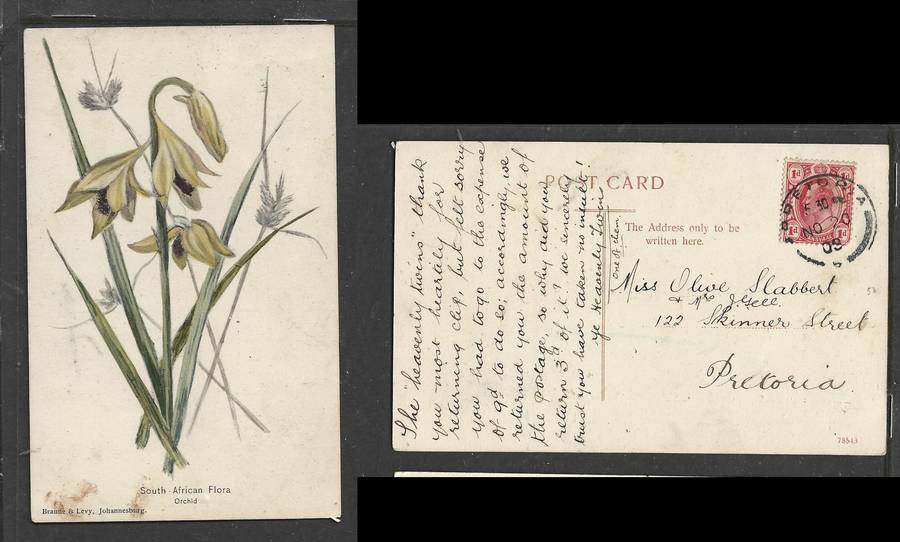 South-African Flora
Orchid
Braune & Levy, Johannesburg.
POST CARD
The Address only to be
written here.
The "heavenly twins" thank
you most heartily for
returning clip, but felt sorry
you had to go to the expense
of 9d to do so; accordingly, we
returned you the amount of
the postage, so why did you
return 3d of it? We sincerely
trust you have taken no insult!
Ye Heavenly Twin
one of them.
1d 1d
PRETORIA
NO
09
1d 1d
Miss Olive Slabbert
& Mrs
122 Skinner Street
Pretoria.
78543